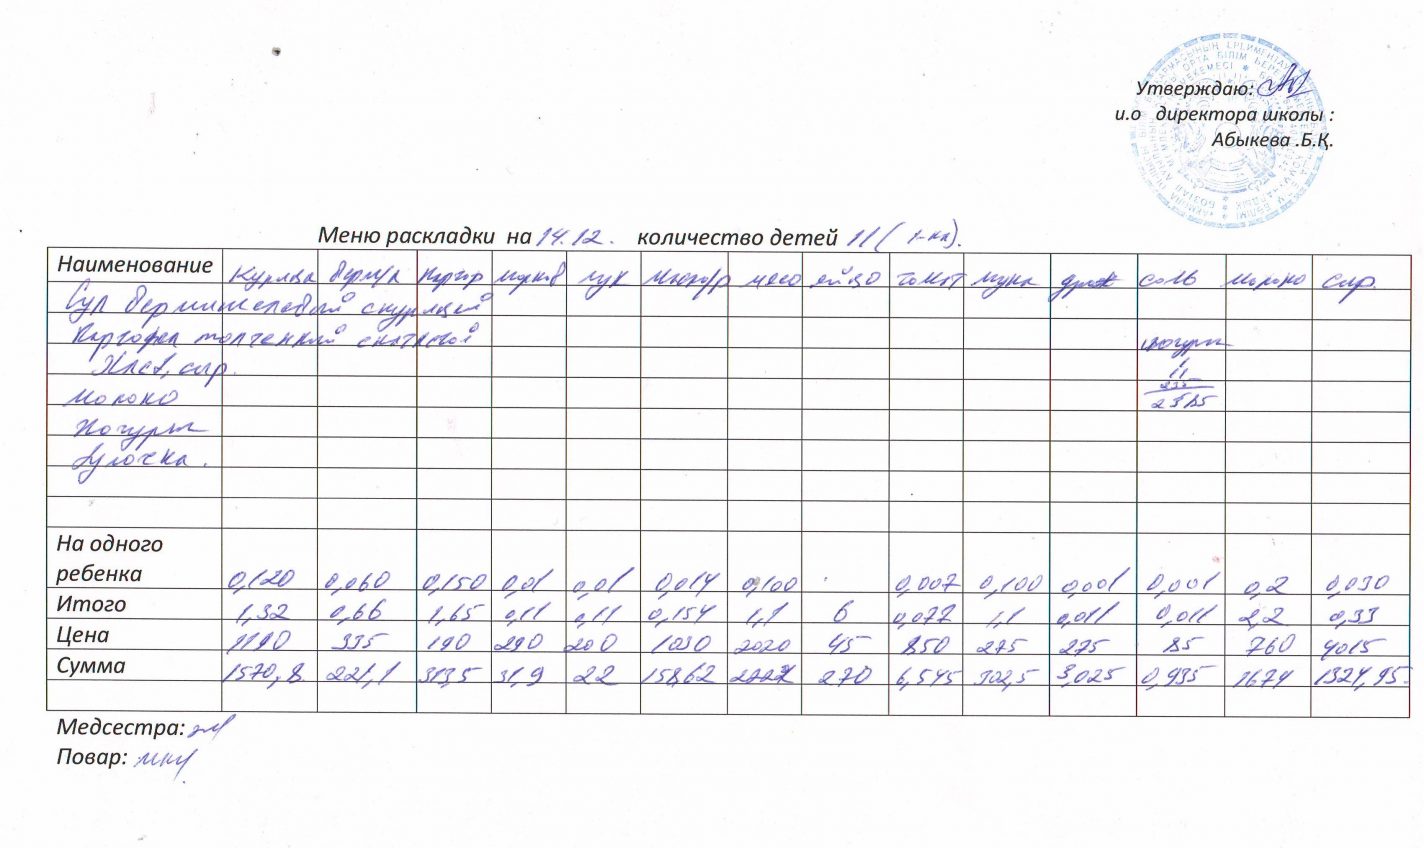 Утверждаю:
и.о директора школы :
Абыкева .Б.Қ.
Меню раскладки на 14.12. количество детей 11 ( 1-кл).
Наименование Курица верм/л картоф морков лук масло/р мясо яйцо томат мука дрож соль молоко сыр.
Суп вермишелевый с курицей
Картофель толченный с котлетой
Хлеб, сыр.
Молоко
Йогурт
Булочка.
йогурт
11
235
2585
На одного
ребенка 0,120 0,060 0,150 0,01 0,01 0,014 0,100 0,007 0,100 0,001 0,001 0,2 0,030
Итого 1,32 0,66 1,65 0,11 0,11 0,154 1,1 6 0,077 1,1 0,011 0,011 2,2 0,33
Цена 1190 335 190 290 200 1030 2020 45 850 275 275 85 760 4015
Сумма 1570,8 221,1 313,5 31,9 22 158,62 2222 270 6,545 302,5 3,025 0,935 1674 1324,95
Медсестра:
Повар: